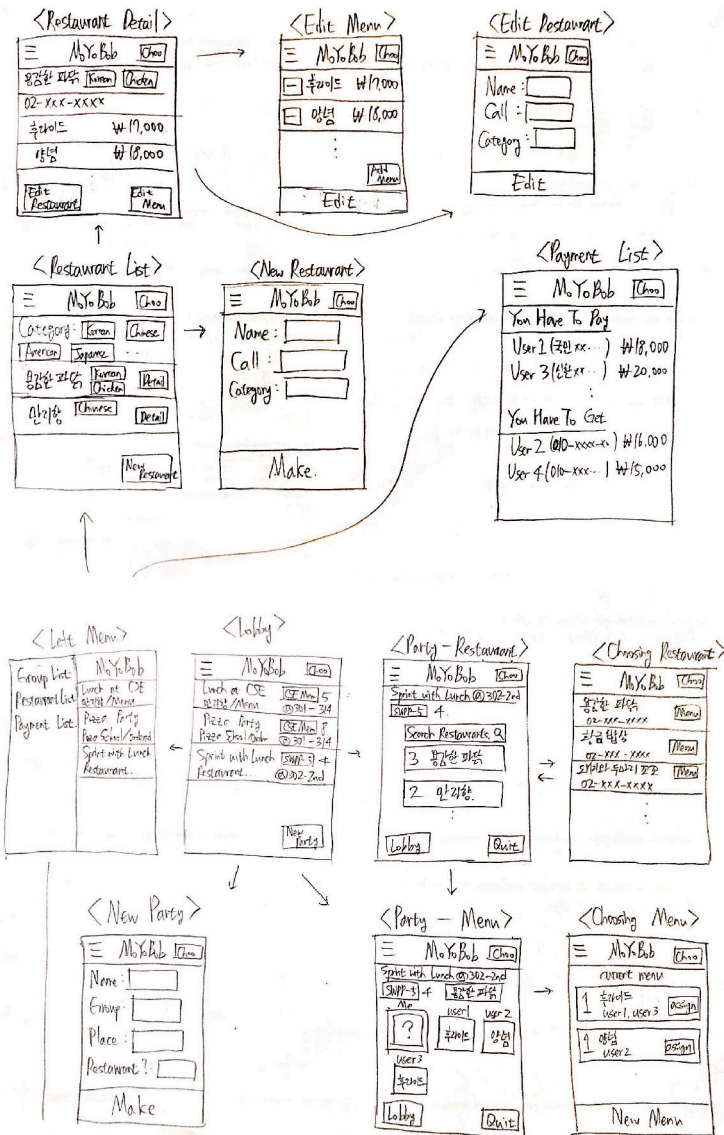 <Restaurant Detail>
☰ MoYoBob Choo
용감한 파닭 Korean Chicken
02-xxx-xxxx
후라이드 ₩17,000
양념 ₩18,000
Edit Restaurant
Edit Menu
<Edit Menu>
☰ MoYoBob Choo
후라이드 ₩17,000
양념 ₩18,000
Add Menu
Edit
<Edit Restaurant>
☰ MoYoBob Choo
Name :
Call :
Category :
Edit
<Restaurant List>
☰ MoYoBob Choo
Category : Korean Chinese
American Japanese ...
용감한 파닭 Korean Chicken Detail
만리향 Chinese Detail
New Restaurant
<New Restaurant>
☰ MoYoBob Choo
Name :
Call :
Category :
Make.
<Payment List>
☰ MoYoBob Choo
You Have To Pay
User 1 (국민 xx...) ₩18,000
User 3 (신한 xx...) ₩20,000
You Have To Get
User 2 (010-xxx-x.) ₩16,000
User 4 (010-xxx...) ₩15,000
<Left Menu>
Group List
Restaurant List
Payment List
MoYoBob
Lunch at CSE
만리향/Menu
Pizza Party
Pizza School/Ordered
Sprint with Lunch
Restaurant...
<Lobby>
☰ MoYoBob Choo
Lunch at CSE CSE Mem 5
만리향/Menu @301-314
Pizza Party CSE Mem 8
Pizza School/Order @301-314
Sprint with Lunch SWPP-5 4
Restaurant... @302-2nd
New Party
<Party - Restaurant>
☰ MoYoBob Choo
Sprint with Lunch @302-2nd
SWPP-5 4.
Search Restaurants.
3 용감한 파닭
2 만리향.
Lobby
Quit
<Choosing Restaurant>
☰ MoYoBob Choo
용감한 파닭 Menu
02-xxx-xxxx
황금 밥상 Menu
02-xxx-xxxx
Menu
02-xxx-xxxx
<New Party>
☰ MoYoBob Choo
Name :
Group :
Place :
Restaurant? :
Make
<Party - Menu>
☰ MoYoBob Choo
Sprint with Lunch @302-2nd
SWPP-5 4 용감한 파닭
Me user1 user2
? 후라이드 양념
user3
후라이드
Lobby
Quit
<Choosing Menu>
☰ MoYoBob Choo
current menu
1 후라이드 assign
user1, user3
1 양념 assign
user2
New Menu